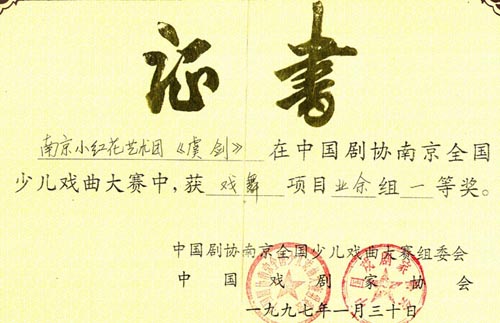 证书
南京小红花艺术团《虞剑》在中国剧协南京全国
少儿戏曲大赛中,获戏舞项目业余组一等奖。
中国剧协南京全国少儿戏曲大赛组委会
中国戏剧家协会
一九九七年一月三十日